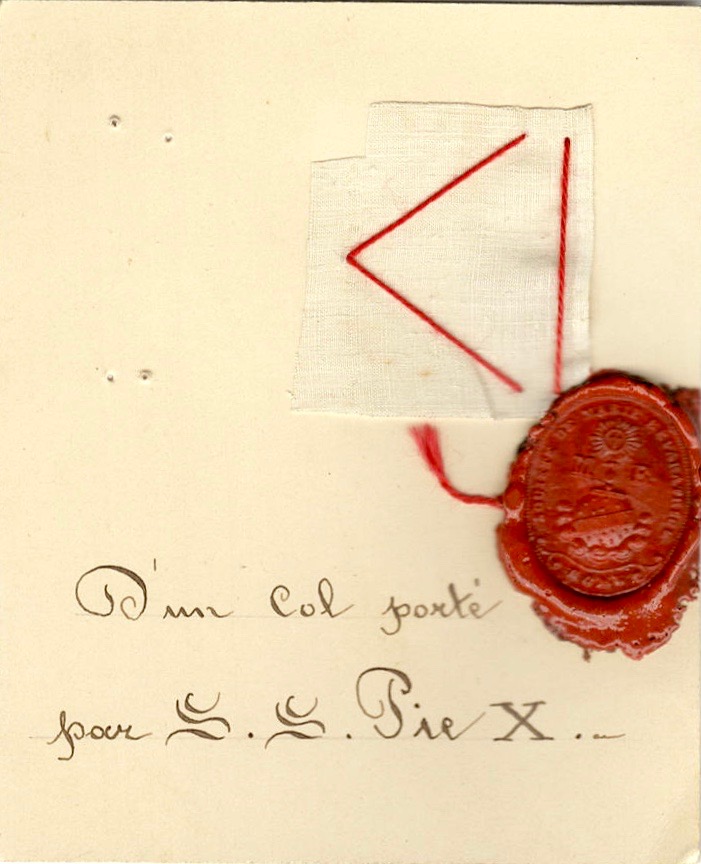 D'un Col porté
par S.S. Pie X.